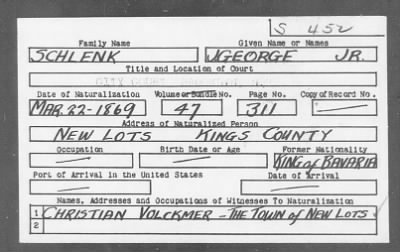 S 452
Family Name Given Name or Names
SCHLENK GEORGE JR.
Title and Location of Court
Date of Naturalization Volume or Bundle No. Page No. Copy of Record No.
MAR. 22-1869 47 311 —
Address of Naturalized Person
NEW LOTS KINGS COUNTY
Occupation Birth Date or Age Former Nationality
— — KING of BAVARIA
Port of Arrival in the United States Date of Arrival
— —
Names, Addresses and Occupations of Witnesses To Naturalization
1 CHRISTIAN VOLCKMER - THE TOWN OF NEW LOTS
2